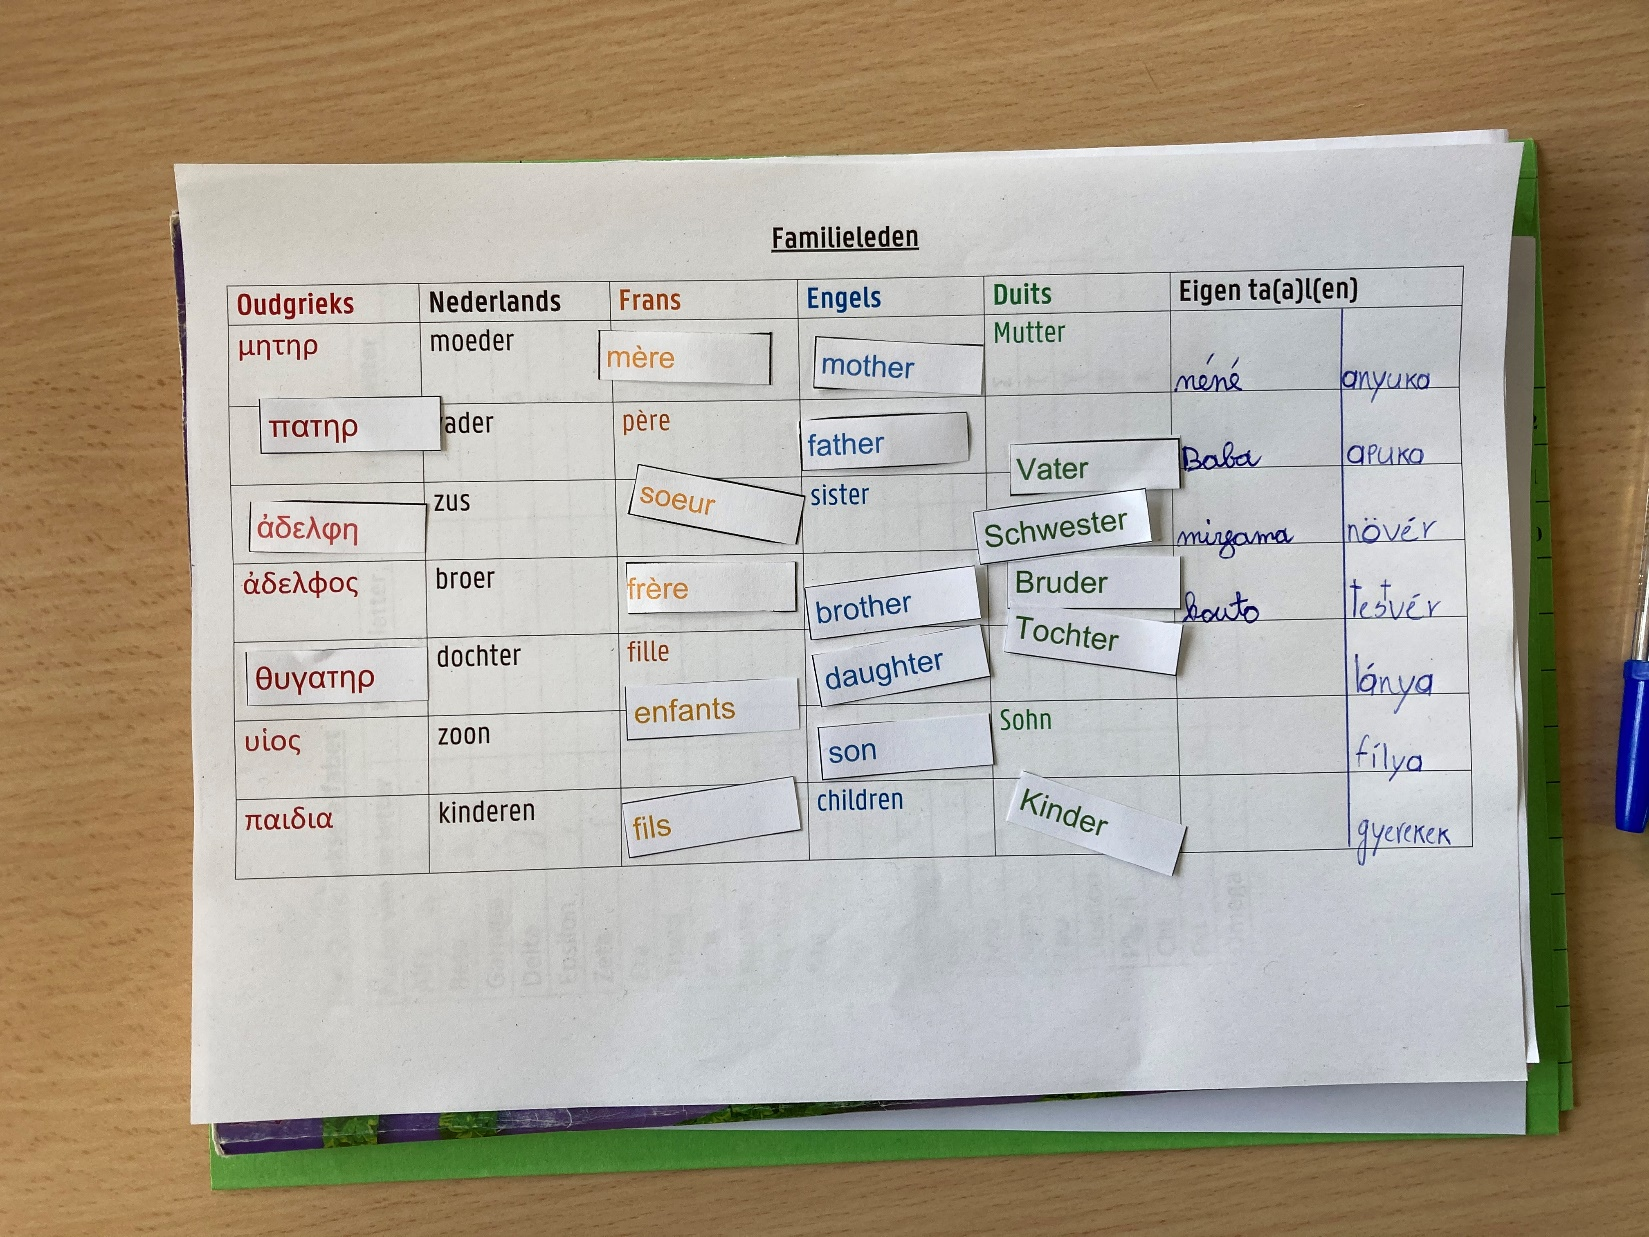 Familieleden
Oudgrieks Nederlands Frans Engels Duits Eigen ta(a)l(en)
μητηρ moeder mère mother Mutter néné anyuka
πατηρ ader père father Vater Baba apuka
ἀδελφη zus soeur sister Schwester mizgama nővér
ἀδελφος broer frère brother Bruder bouto testvér
θυγατηρ dochter fille daughter Tochter lánya
υἱος zoon enfants son Sohn fílya
παιδια kinderen fils children Kinder gyerekek